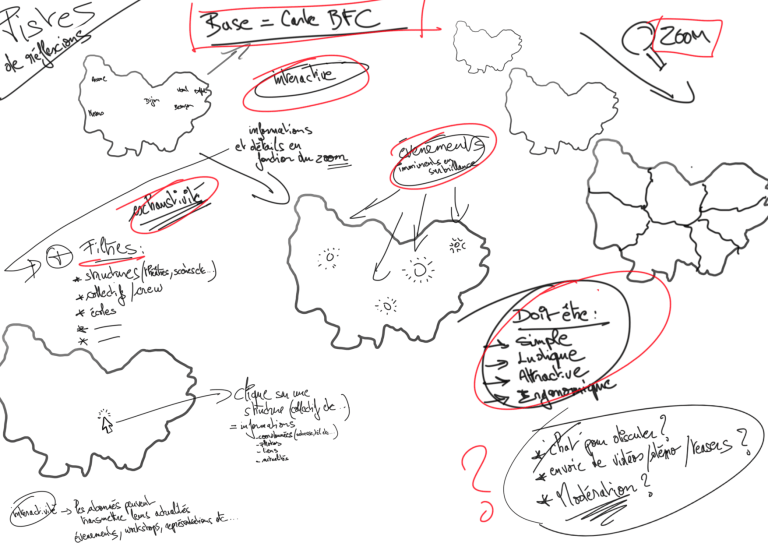 Pistes
de réflexions
Base = Carte BFC
ZOOM
interactive
Dijon
informations
et détails en
fonction du zoom
évènements
imminents en
surbrillance
exhaustivité
+ Filtres :
* structures (théâtres, scènes etc...)
* collectifs/crew
* écoles
*
*
Doit être :
→ Simple
→ Ludique
→ Attractive
→ Ergonomique
clique sur une
structure (collectif etc...)
= informations
- coordonnées
- photos
- liens
- actualités
?
* chat pour discuter ?
* envoie de vidéos/démo/teasers ?
* Modération ?
interactivité → les abonnés peuvent
transmettre leurs actualités
évènements, workshops, représentations etc...